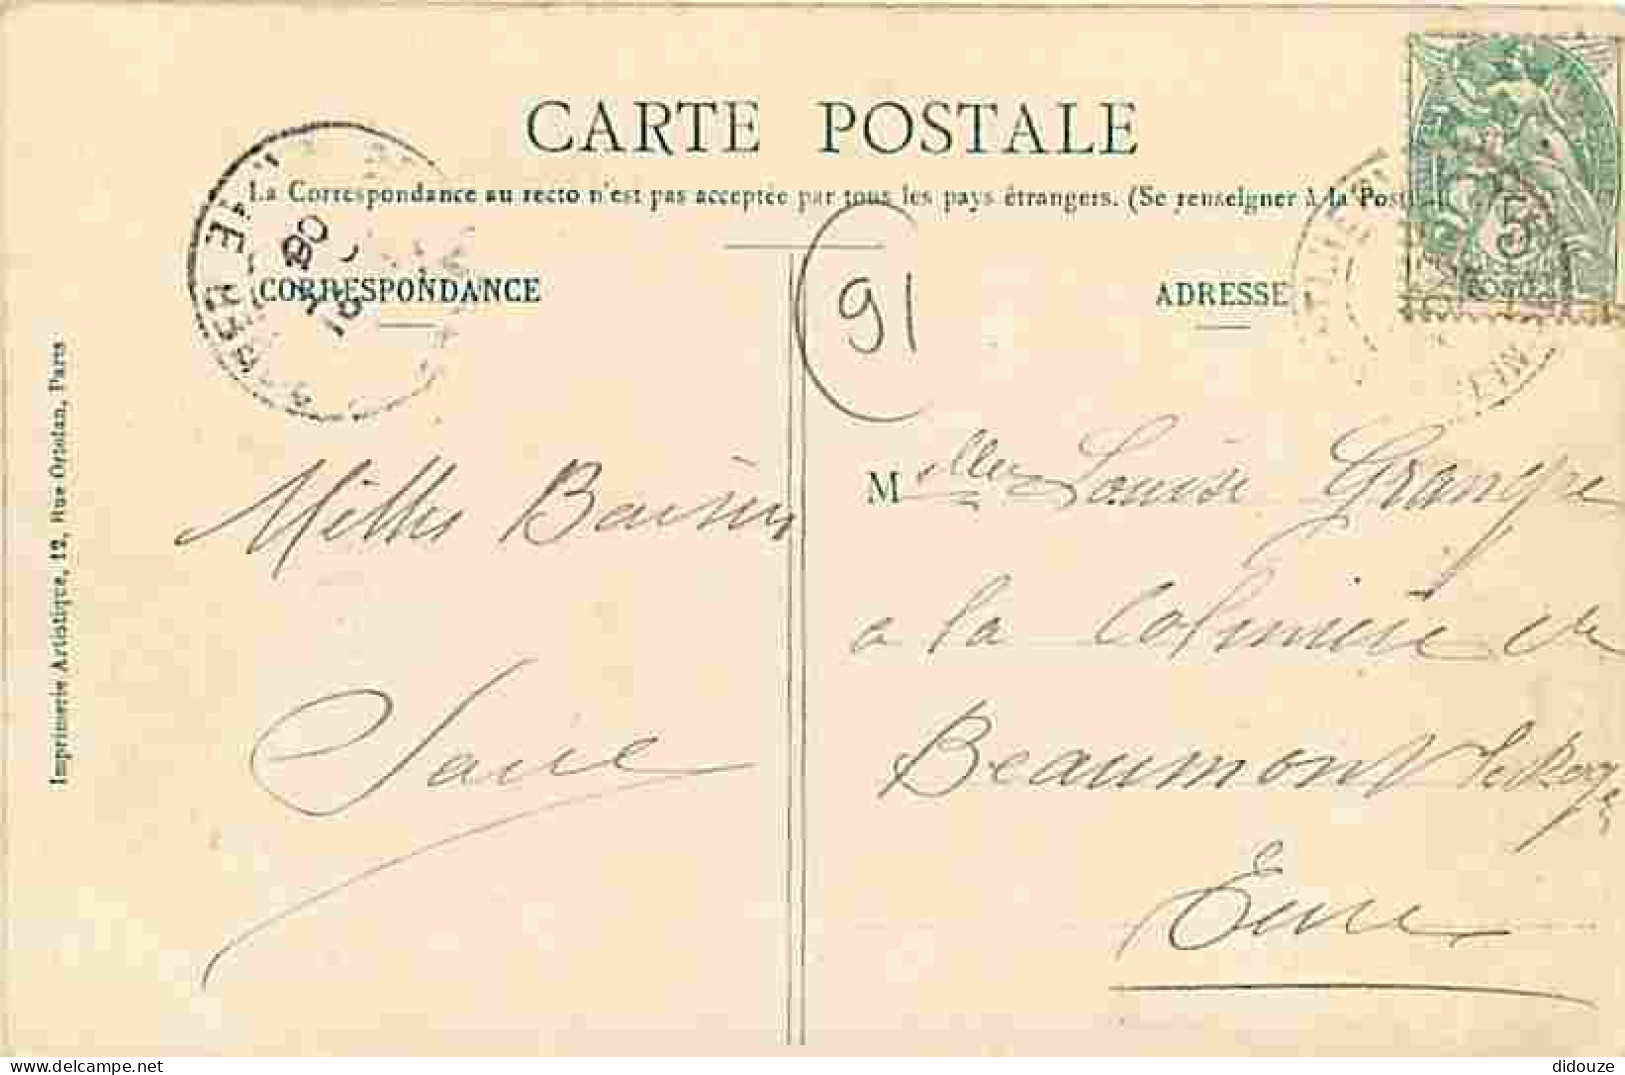 CARTE POSTALE
La Correspondance au recto n'est pas acceptée par tous les pays étrangers. (Se renseigner à la Poste)
CORRESPONDANCE
ADRESSE
91
5
POSTES
Milles Baisers
M elle Louise Grangé
a la Colinière de
Beaumont le Roger
Eure
Imprimerie Artistique, 12, Rue Ortolan, Paris
www.delcampe.net
didouze